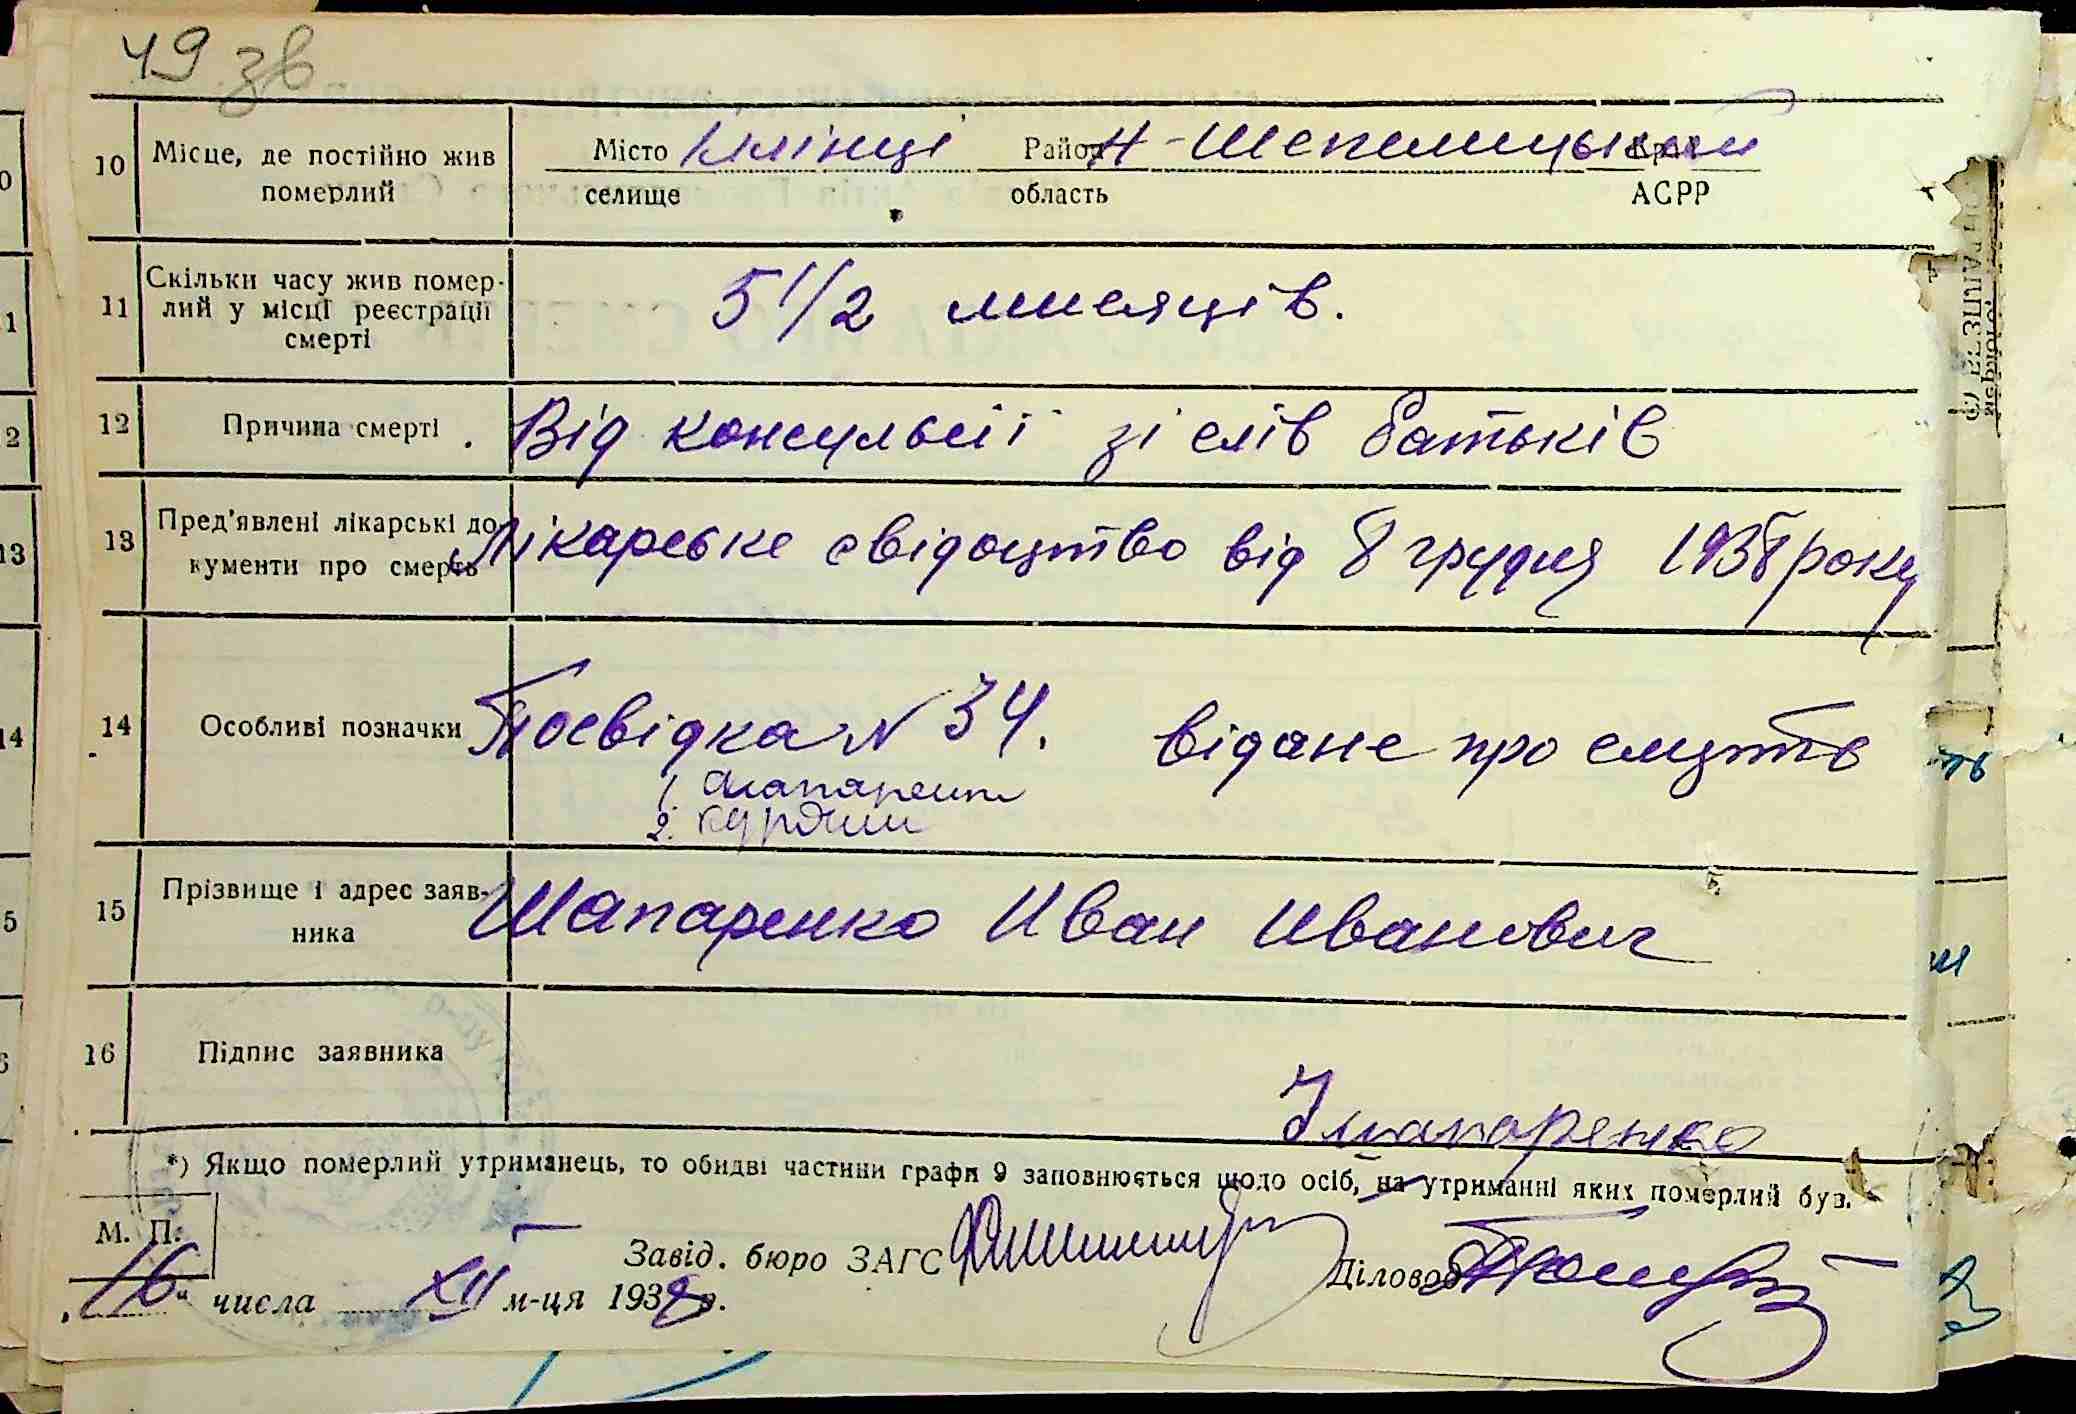 49 зв
10 Місце, де постійно жив померлий
Місто Іллінці Район Н-Шепелицький Край
селище область АСРР
11 Скільки часу жив помер-
лий у місці реєстрації
смерті
5 1/2 мисяців.
12 Причина смерті . Від консульсії зі слів батьків
13 Пред'явлені лікарські до-
кументи про смерть
Лікарське свідоцтво від 8 грудня 1938 року
14 Особливі позначки Посвідка N 34. відане про смурть
1.
2.
15 Прізвище і адрес заяв-
ника
Шапаренко Иван Иванович
16 Підпис заявника
Шапаренко
*) Якщо померлий утриманець, то обидві частини графи 9 заповнюється щодо осіб, на утриманні яких померлий був.
М. П.
Завід. бюро ЗАГС Діловод
„16" числа XII м-ця 1938 р.